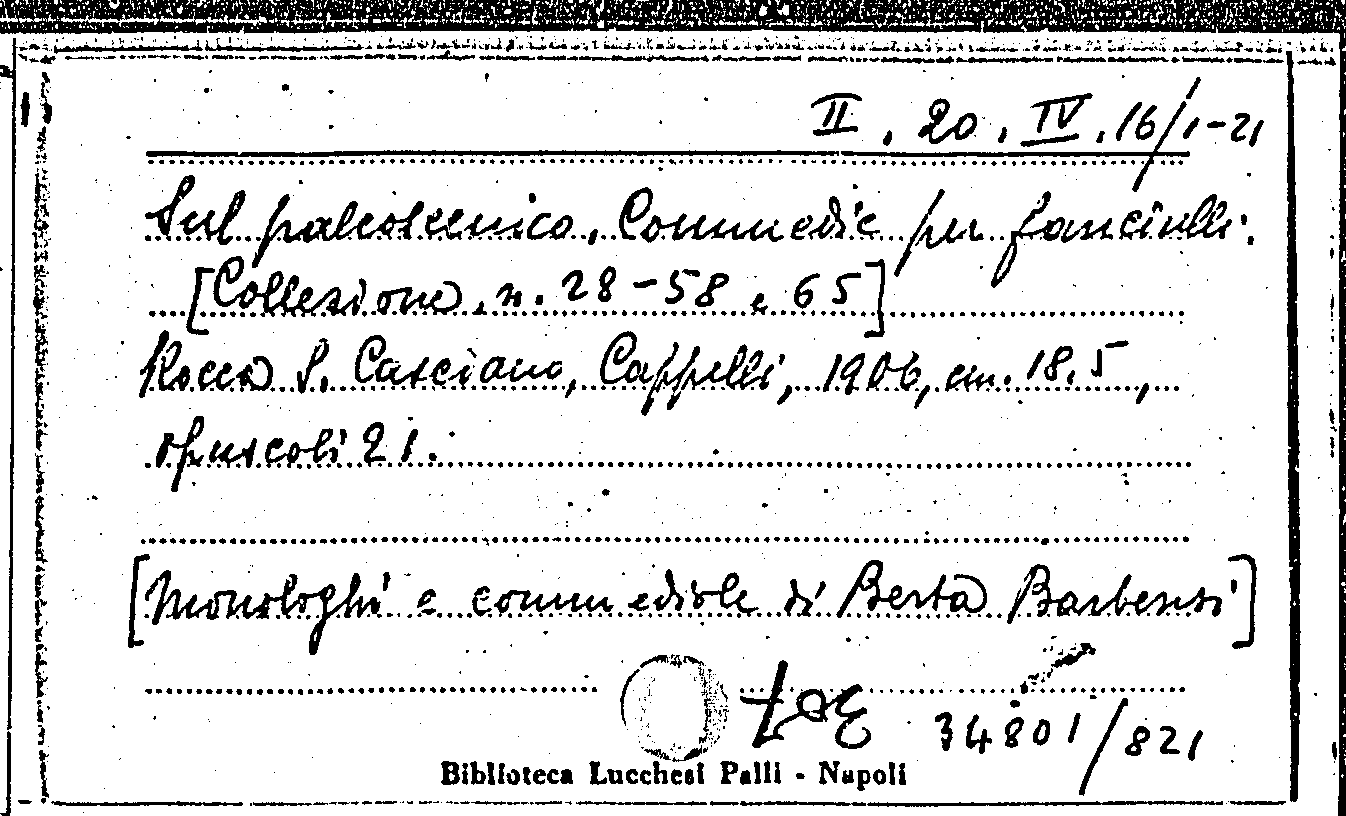 II. 20. IV. 16/1-21
Sul palcoscenico. Commedie per fanciulli.
[Collezione, n. 28-58 e 65]
Rocca S. Casciano, Cappelli, 1906, cm. 18.5,
opuscoli 21.
[Monologhi e commediole di Berta Barbensi]
34801/821
Biblioteca Lucchesi Palli - Napoli